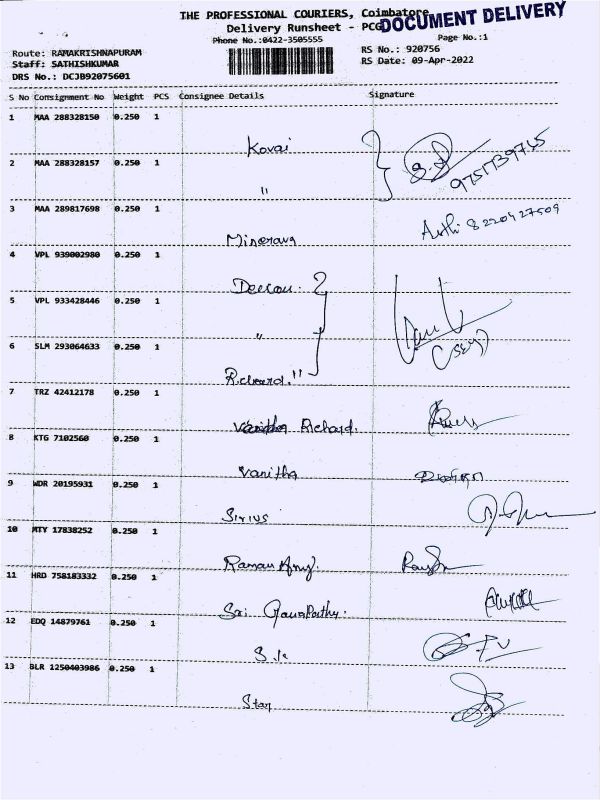 THE PROFESSIONAL COURIERS, Coimbatore
DOCUMENT DELIVERY
Delivery Runsheet - PCG
Phone No.:0422-3505555
Page No.:1
Route: RAMAKRISHNAPURAM
RS No.: 920756
Staff: SATHISHKUMAR
RS Date: 09-Apr-2022
DRS No.: DCJB92075601
S No Consignment No Weight PCS Consignee Details Signature
1 MAA 288328150 0.250 1
Kovai
9751739745
2 MAA 288328157 0.250 1
"
3 MAA 289817698 0.250 1
Minerava
8220427509
4 VPL 939002980 0.250 1
Deccan.
5 VPL 933428446 0.250 1
"
6 SLM 293064633 0.250 1
Richard."
7 TRZ 42412178 0.250 1
Richard.
8 KTG 7102560 0.250 1
Vanitha
9 WDR 20195931 0.250 1
Sirius
10 MTY 17838252 0.250 1
Raman
11 HRD 758183332 0.250 1
Sri Ganapathy.
12 EDQ 14879761 0.250 1
S.k
13 BLR 1250403986 0.250 1
Star